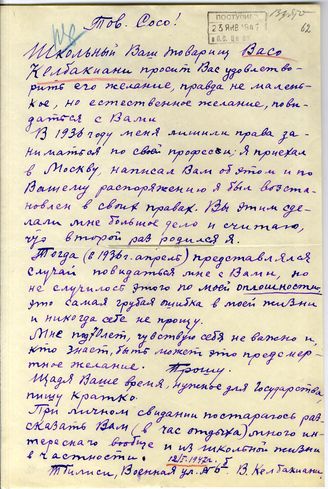 Тов. Сосо!
ПОСТУПИЛО
23 ЯНВ 1947
62
Школьный Ваш товарищ Васо
Келбакиани просит Вас удовлетво-
рить его желание, правда не малень-
кое, но естественное желание, пови-
даться с Вами
В 1936 году меня лишили права за-
ниматься по своей професси; я приехал
в Москву, написал Вам об этом и по
Вашему распоряжению я был восста-
новлен в своих правах. Вы этим сде-
лали мне большое дело и считаю,
что второй раз родился я.
Тогда (в 1936 г. апрель) представлялся
случай повидаться мне с Вами, но
не случилось этого по моей оплошности
это самая грубая ошибка в моей жизни
и никогда себе не прощу.
Мне под 70 лет, чувствую себя не важно и,
кто знает, быть может это предсмерт-
ное желание. Прошу.
Щадя Ваше время, нужное для Государства
пишу кратко.
При личном свидании постараюсь рас-
сказать Вам (в час отдыха) много ин-
тереснаго вообще и из школьной жизни
в частности.
Тбилиси, Военная ул. В. Келбакиани.